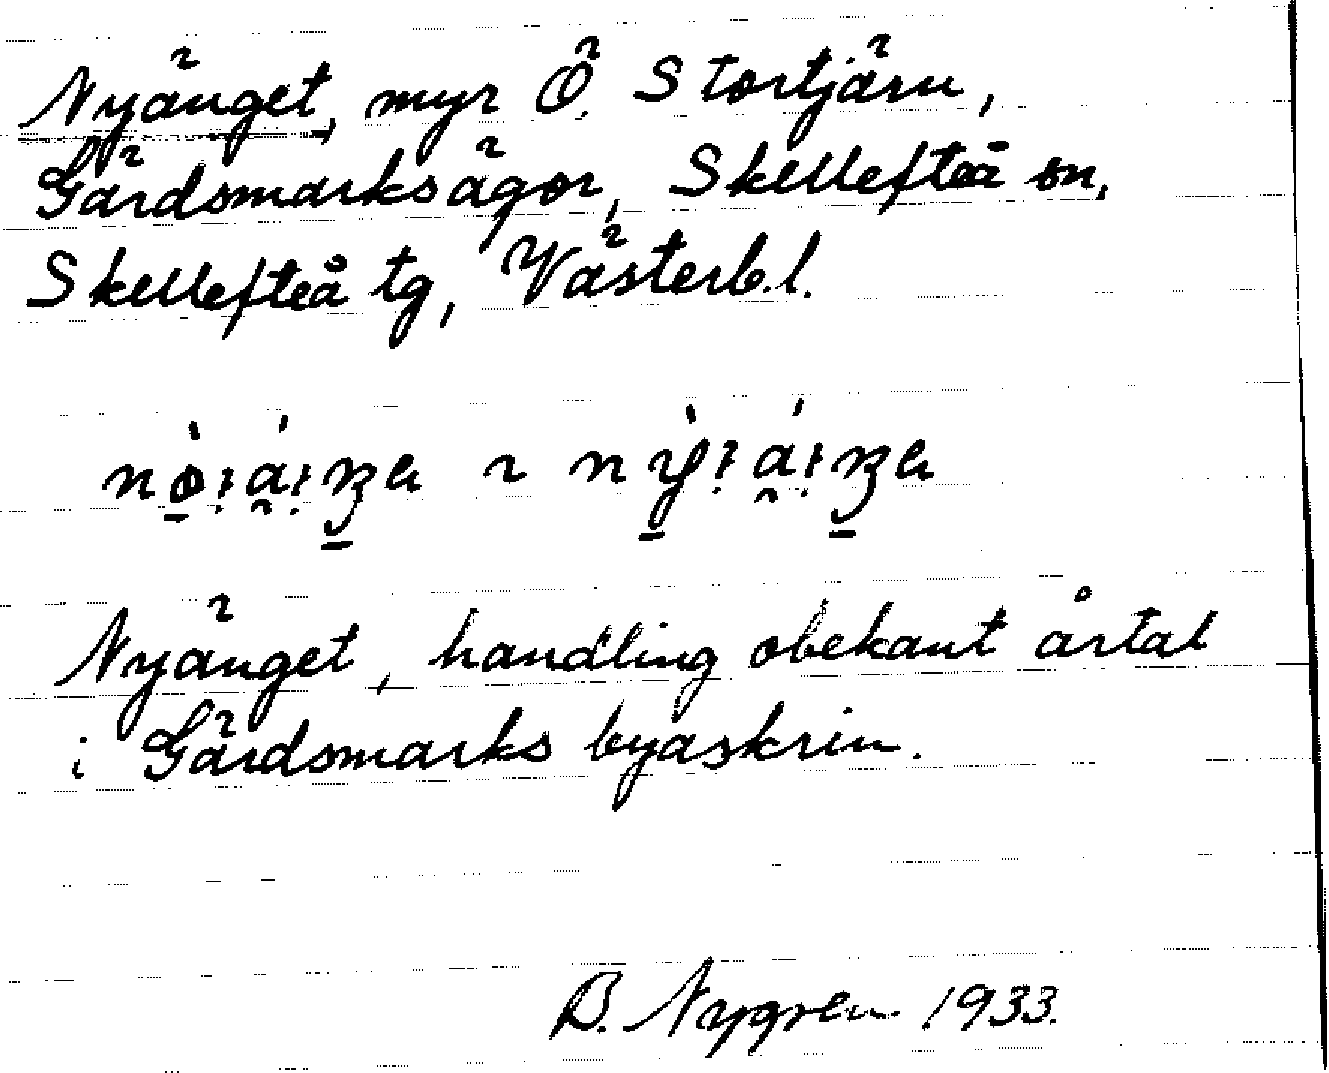 Nyänget, myr Ö. Stortjärn,
Gärdsmarksägor, Skellefteå sn,
Skellefteå tg, Västerb.l.
Nyänget, handling obekant årtal
i Gärdsmarks byaskrin.
B. Nygren 1933.